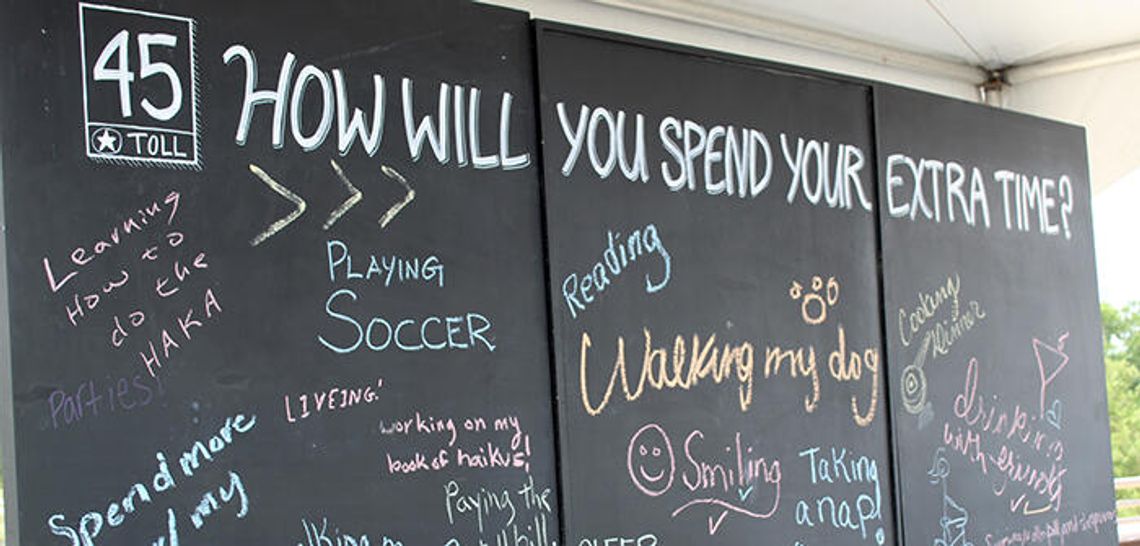 45
TOLL
HOW WILL YOU SPEND YOUR EXTRA TIME?
Learning
How to
do the
HAKA
PLAYING
SOCCER
Parties!
LIVEING!
working on my
book of haikus!
Spend more
my
Paying the
Reading
Walking my dog
Smiling
Taking
a nap!
Cooking
Dinner
drinking
with friends